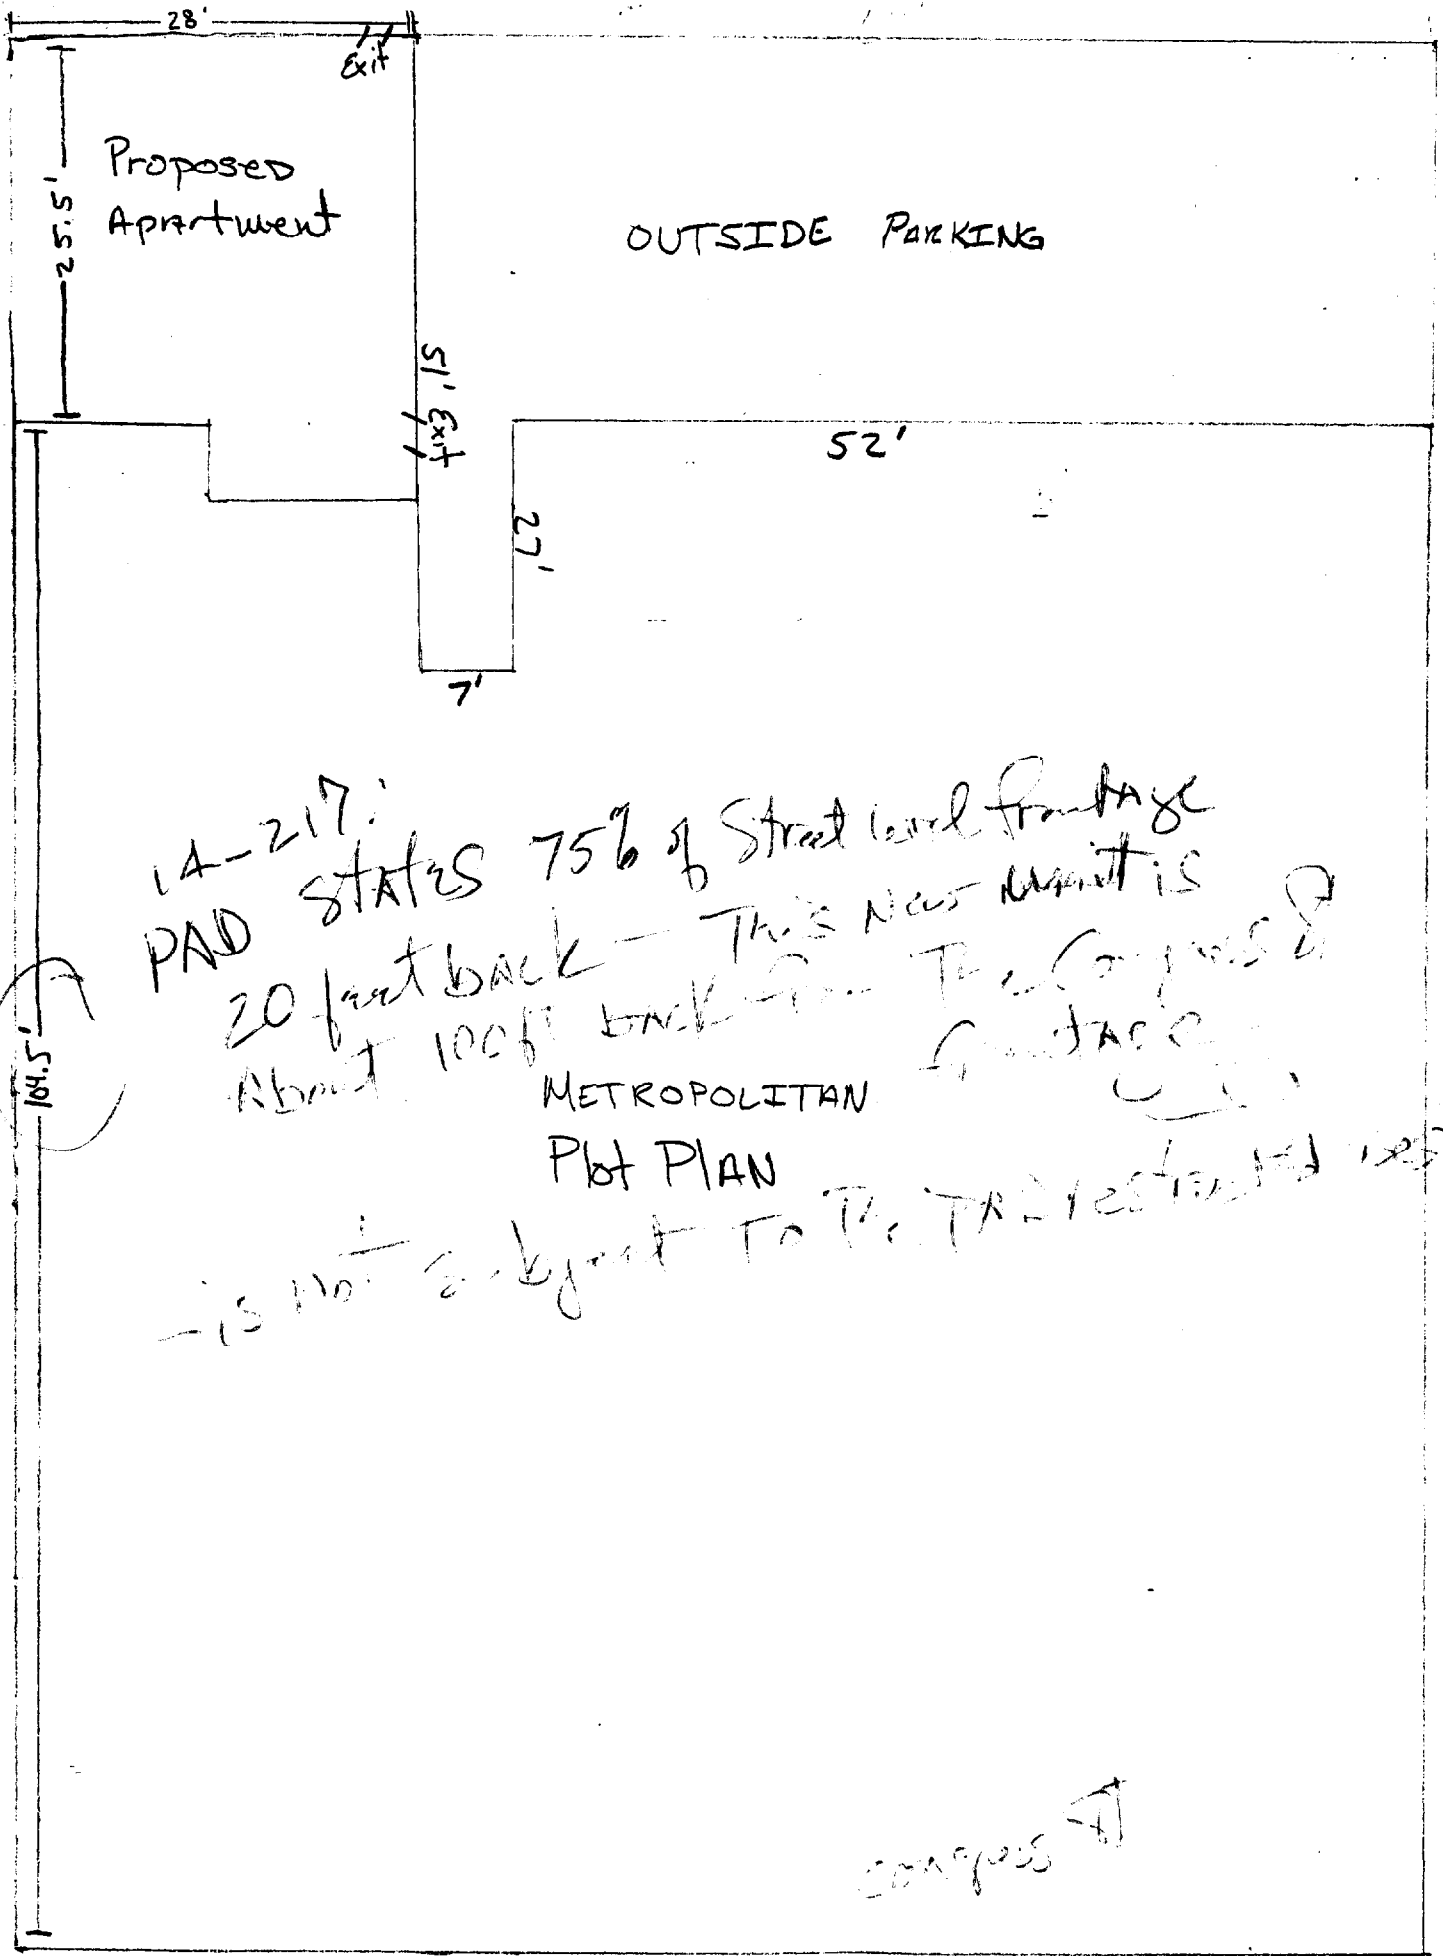 28'
Exit
25.5'
Proposed
Apartment
OUTSIDE PARKING
51'
Exit
52'
27'
7'
14-217:
PAD States 75% of Street level frontage
20 feet back - This New unit is
About 100ft back from The Congress St
frontage
104.5'
METROPOLITAN
Plot PLAN
- is Not subject To The PAD restricted uses
Congress St